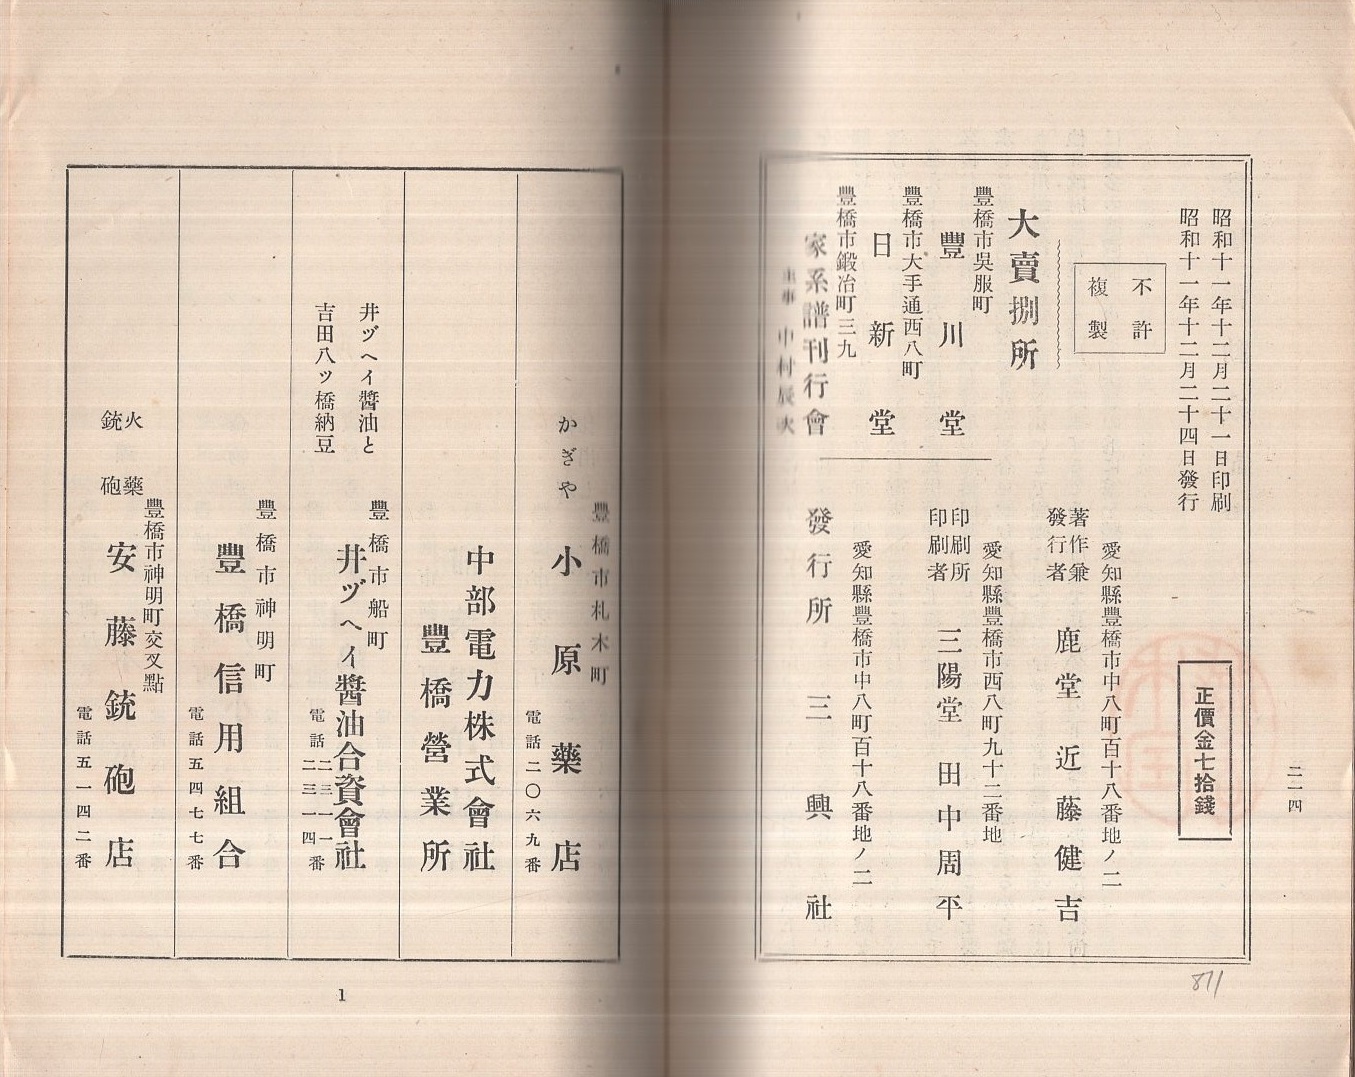 昭和十一年十二月二十一日印刷
昭和十一年十二月二十四日發行
不許
複製
正價金七拾錢
二一四
愛知縣豐橋市中八町百十八番地ノ二
著作兼
發行者
鹿堂 近藤健吉
愛知縣豐橋市西八町九十二番地
印刷所
印刷者
三陽堂 田中周平
愛知縣豐橋市中八町百十八番地ノ二
發行所 三興社
大賣捌所
豐橋市吳服町
豐川堂
豐橋市大手通西八町
日新堂
豐橋市鍛冶町三九
家系譜刊行會
主事 中村辰次
811
豐橋市札木町
かぎや 小原藥店
電話二〇六九番
中部電力株式會社
豐橋營業所
井ヅヘイ醬油と
吉田八ツ橋納豆
豐橋市船町
井ヅヘイ醬油合資會社
電話二三一一番
二三一四
豐橋市神明町
豐橋信用組合
電話五四七七番
豐橋市神明町交叉點
火藥
銃砲
安藤銃砲店
電話五一四二番
1